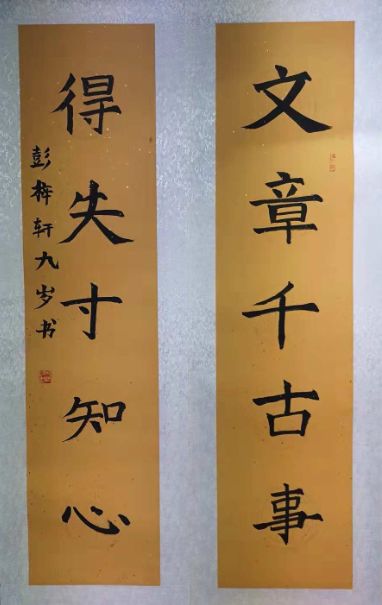 文章千古事
得失寸知心
彭梓轩九岁书